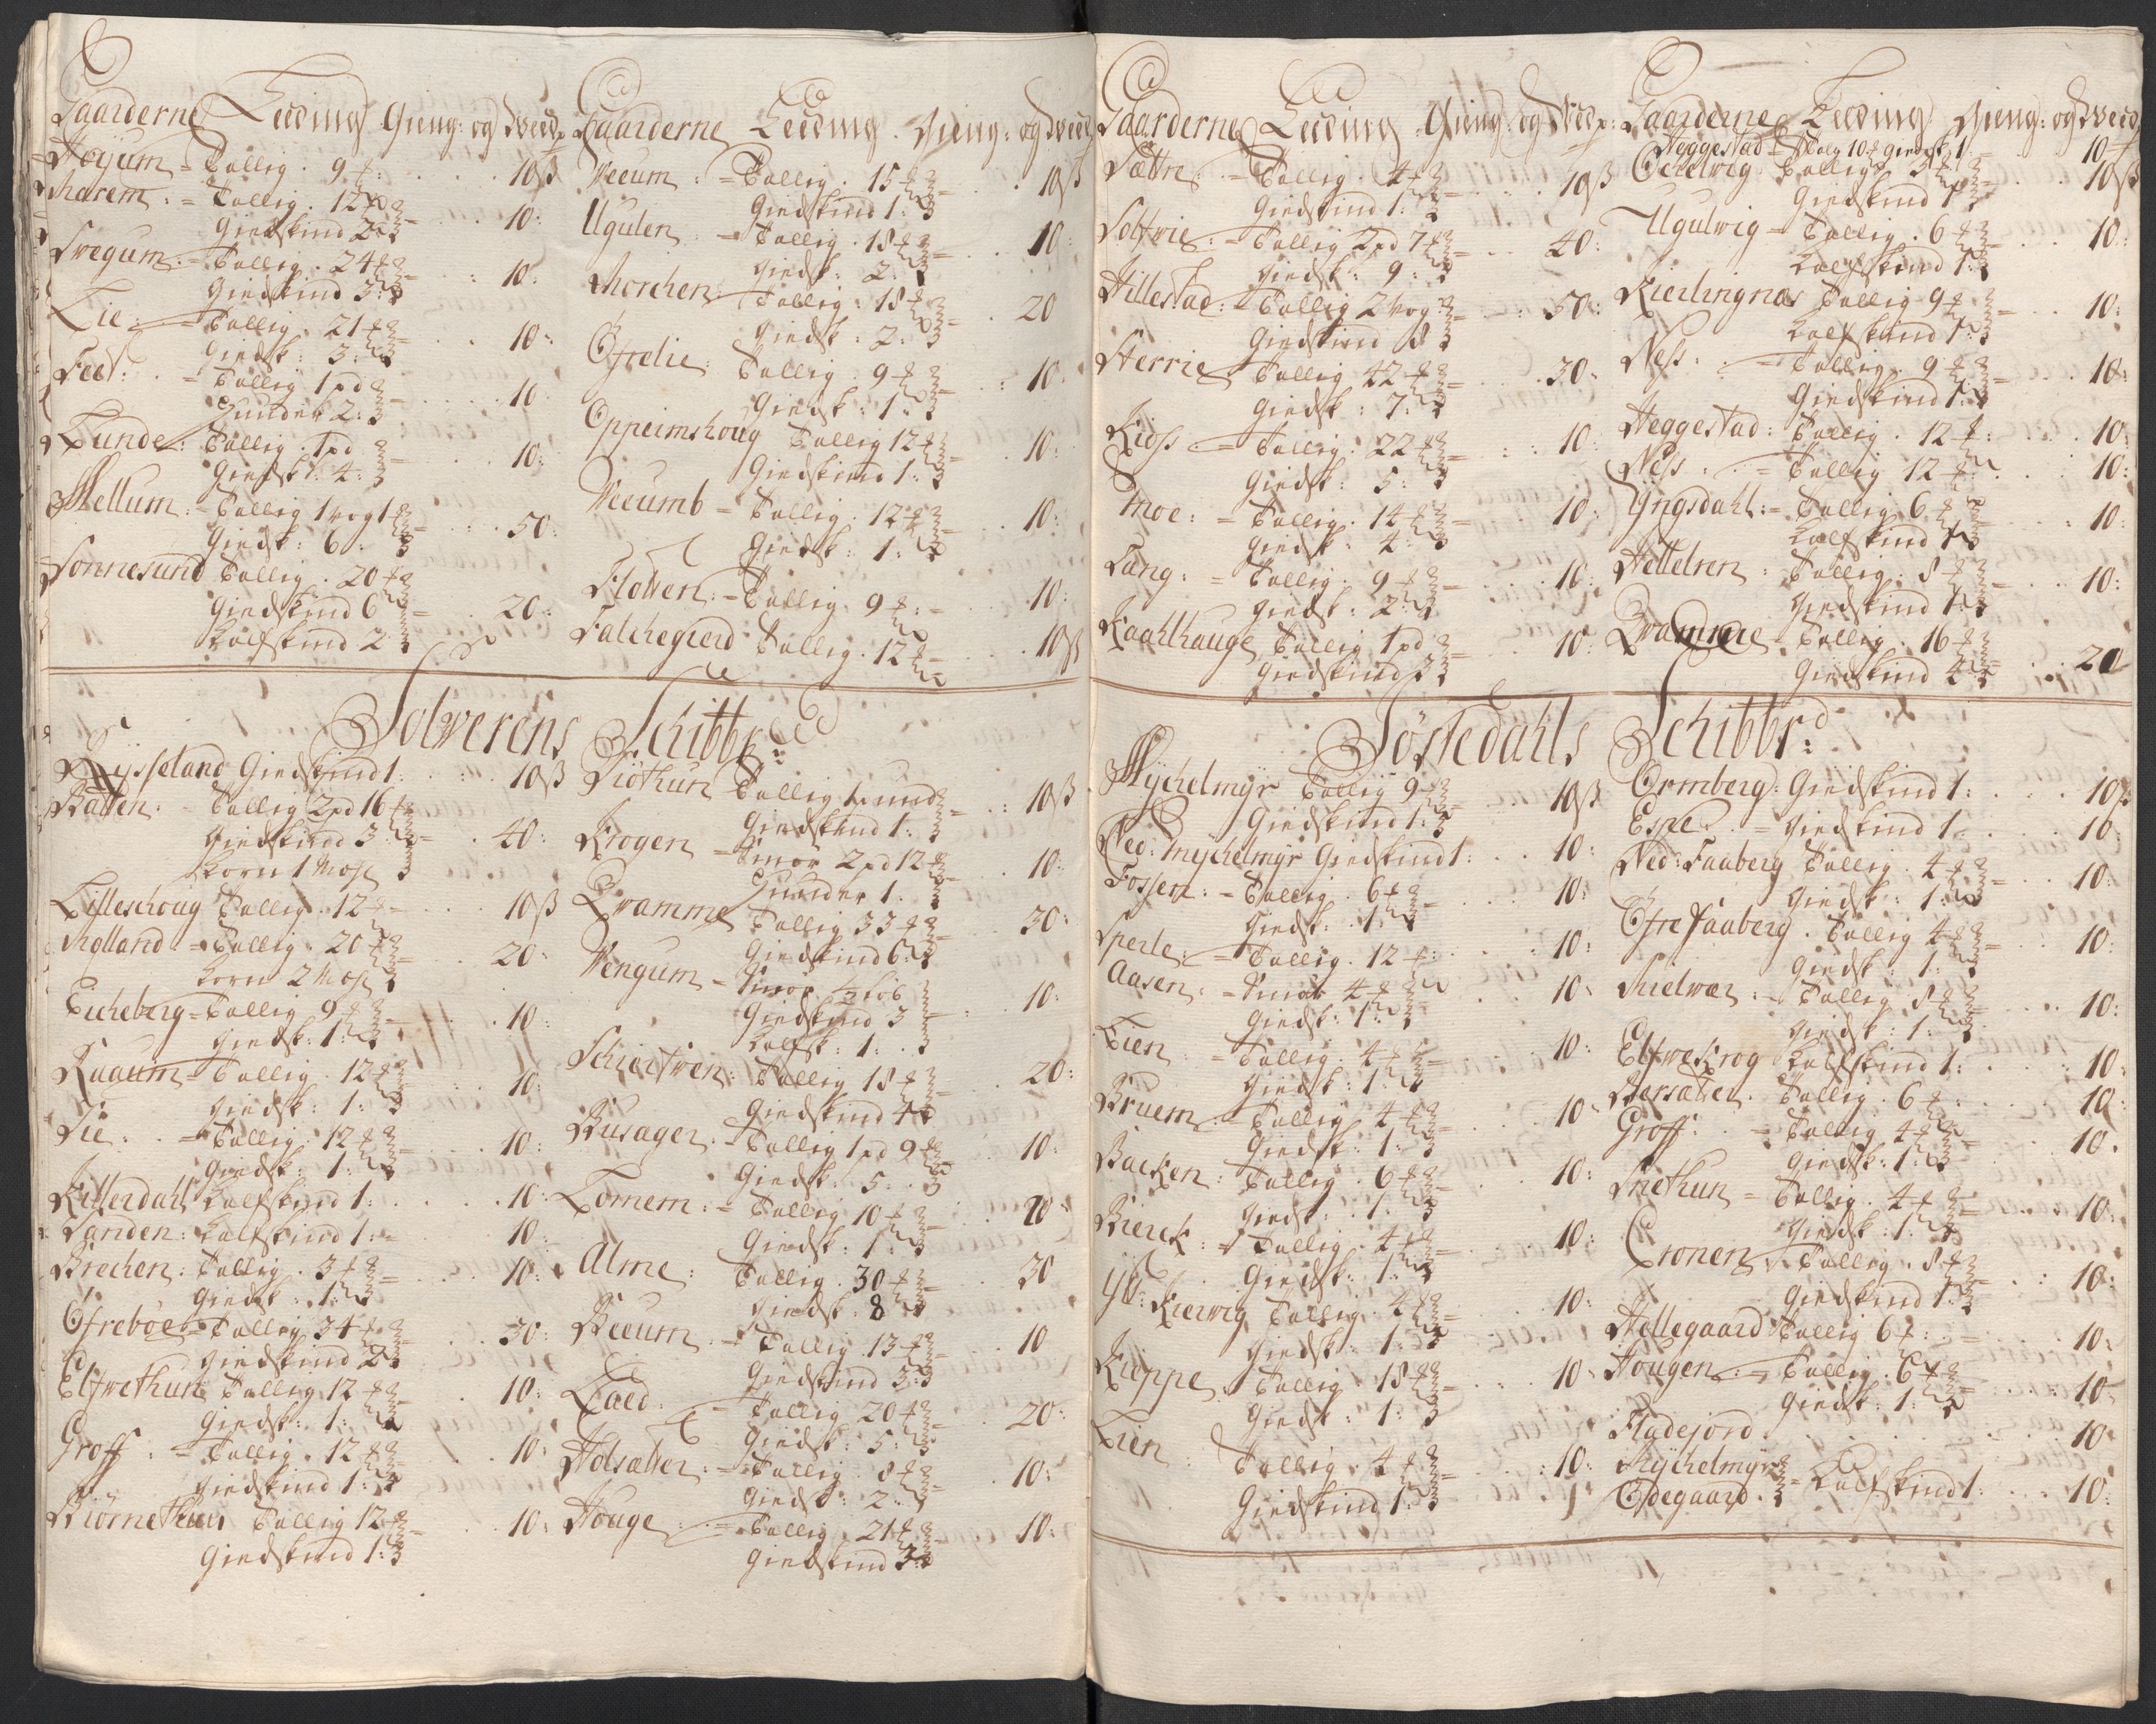 Gaarderne Leeding Gieng: og Hveed:
Høyum = Tallig. 9 ℔: 10 ß
Marem: = Tallig. 12 ℔
Giedskind 2: 10:
Svegum = Tallig. 24 ℔
Giedskind 3: 10:
Lie: = Tallig. 21 ℔
Giedsk: 3: 10:
Feet: = Tallig 1 pd
Huuder 2: 10
Lunde: Tallig. 1 pd
Giedsk: 4: 10:
Mellum: = Tallig 1 vog 1 ℔
Giedsk: 6: 50:
Sonnesund Tallig. 20 ℔
Giedskind 6 20:
Kalfskind 2
Gaarderne Leeding. Gieng: og Hveed
Veeum: = Tallig. 15 ℔ 10 ß
Giedskind 1:
Ugulen = Tallig. 18 ℔
Giedsk: 2: 10:
Morchen Tallig: 18 ℔
Giedsk: 2: 20
Øfrelie: Tallig. 9 ℔
Giedsk: 1: 10:
Oppeimshoug Tallig 12 ℔
Giedskind 1: 10:
Veeumb = Tallig. 12 ℔
Giedsk: 1: 10:
Flotten: = Tallig. 9 ℔: 10:
Falchegierd Tallig. 12 ℔ 10 ß
Solwerens Schibbr:
Rysseland Giedskind 1: 10 ß
Batten: Tallig 2 pd 16 ℔
Giedskind 3 40:
Korn 1 Moß
Lilleschoug Tallig. 12 ℔ 10 ß
Molland = Tallig: 20 ℔
Korn 2 Moß 20:
Eicheberg = Tallig 9 ℔
Giedsk: 1: 10:
Raaum = Tallig. 12 ℔
Giedsk: 1: 10:
Lie: = Tallig: 12 ℔
Giedsk: 1: 10:
Killerdahl Kalfskind 1: 10:
Sanden: Kalfskind 1: 10:
Brechen: Tallig. 3 ℔
Giedsk: 1: 10:
Øfrebøe = Tallig 34 ℔
Giedskind 2 30:
Elfwethun Tallig 12 ℔
Giedsk: 1: 10:
Groff: = Tallig. 12 ℔
Giedskind 1: 10:
Biørnethun Tallig 12 ℔
Giedskind 1: 10:
Siøthun Tallig 1 pund
Giedskind 1: 10 ß
Krogen = Smør 2 pd 12 ℔
Huuder 1: 10:
Qvamme Tallig 33 ℔
Giedskind 6: 30:
Vengum = Smør ½ løb
Giedskind 3 10:
Kalfsk: 1:
Schiertwen: Tallig 18 ℔
Giedskind 4 20:
Busager: = Tallig 1 pd 9 ℔
Giedsk: 5: 10:
Tornem: = Tallig 10 ℔
Giedsk: 1: 10:
Alme: Tallig. 30 ℔
Giedsk: 8 30
Beeum: = Tallig. 13 ℔
Giedskind 3: 10
Taed: = Tallig 20 ℔
Giedsk: 5: 20:
Holsatter: = Tallig. 8 ℔
Gieds: 2: 10:
Houge: = Tallig. 21 ℔
Giedskind 3: 10:
Gaarderne Leeding Gieng: og Hveed:
Sættn: = Tallig. 4 ℔
Giedskind 1: 10 ß
Solfwie: = Tallig 2 pd 7 ℔
Giedsk: 9: 40:
Hillestad: = Tallig 2 vog
Giedskind 8 50:
Herrie Tallig 42 ℔
Giedsk: 7: 30:
Kiøss = Tallig. 22 ℔
Giedsk: 5: 10:
Moe: = Tallig. 14 ℔
Giedsk: 4: 10:
Lang: = Tallig: 9 ℔
Giedsk: 2: 10:
Kaahlhauge Tallig 1 pd
Giedskind 3 10:
Gaarderne Leeding Gieng: og Hveed
Heggestad Talg 10 ℔ giedsk 1 10
Ochelwig. Tallig 3 ℔
Giedskind 1 10 ß
Ugulwig = Tallig. 6 ℔
Kalfskind 1: 10:
Kierlingnæs Tallig 9 ℔
Kalfskind 1: 10:
Ness: = Tallig. 9 ℔
Giedskind 1: 10:
Heggestad: Tallig. 12 ℔: 10:
Ness: = Tallig 12 ℔: 10:
Yngsdahl: = Tallig 6 ℔
Kalfskind 1 10:
Hettelren: Tallig: 8 ℔
Giedskind 1: 10:
Qvamme = Tallig. 16 ℔
Giedskind 4 20
Jøstedahls Schibbr:
Myckelmyr Tallig 9 ℔
Giedskind 1: 10 ß
Ned: Myckelmyr Giedskind 1: 10:
Fossen: = Tallig. 6 ℔
Giedsk: 1: 10:
Sperle: = Tallig. 12 ℔: 10:
Aasen: = Smør 4 ℔
Giedsk: 1: 10:
Lien = Tallig. 4 ℔
Giedsk: 1: 10:
Bruem: = Tallig. 4 ℔
Giedsk: 1: 10:
Backen: Tallig. 6 ℔
Giedsk: 1: 10:
Bierck: = Tallig. 4 ℔
Giedsk: 1: 10:
Yt: Kierwig Tallig. 4 ℔
Giedsk: 1: 10:
Kieppe Tallig. 18 ℔
Giedsk: 1: 10:
Lien Tallig. 4 ℔
Giedskind 1: 10:
Ormberg: Giedskind 1: 10 ß
Espe: = Giedskind 1: 10:
Ned: Faaberg Tallig. 4 ℔
Giedsk: 1: 10:
Øfre Faaberg. Tallig 4 ℔
Giedsk: 1: 10:
Mielwer: = Tallig. 8 ℔
Giedsk: 1: 10:
Elfwekrog Kalfskind 1: 10:
Bersætter. Tallig. 6 ℔ 10:
Groff: = Tallig 4 ℔
Giedsk: 1: 10.
Snethun = Tallig. 4 ℔
Giedsk: 1: 10:
Cronen Tallig. 8 ℔
Giedskind 1: 10:
Hellegaard Tallig 6 ℔: 10:
Hougen: = Tallig: 6 ℔
Giedsk: 1: 10:
Fladejord 10:
Myckelmyr
Ødegaard. = Kalfskind 1: 10: